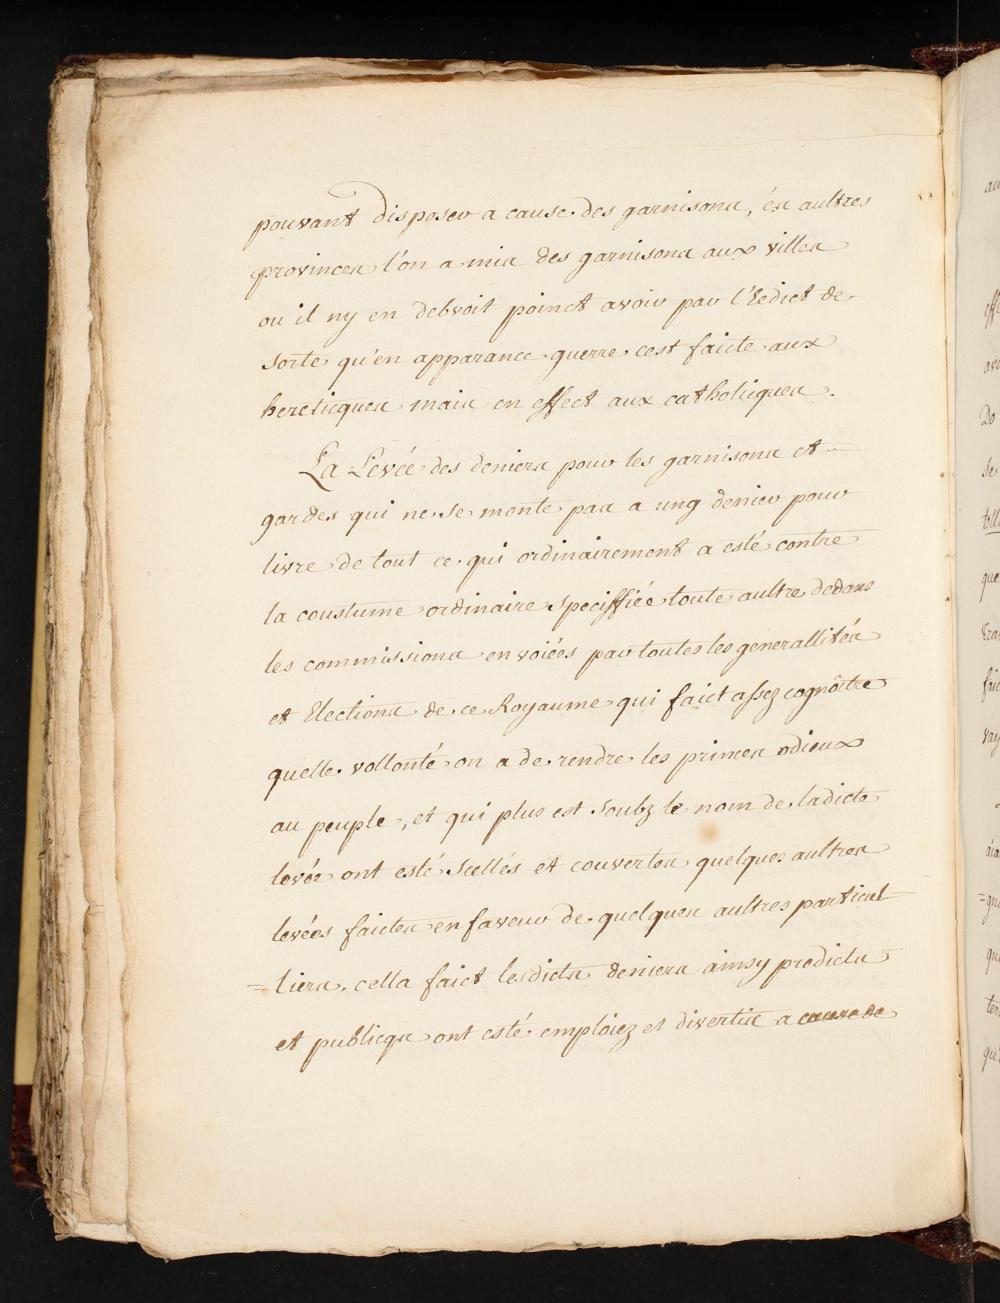 pouvant disposer a cause des garnisons, és aultres
provinces l'on a mis des garnisons aux villes
ou il ny en debvoit poinct avoir par l'Edict de
sorte qu'en apparance guerre cest faicte aux
hereticques mais en effect aux catholicques.
La Levée des deniers pour les garnisons et
gardes qui ne se monte pas a ung denier pour
livre de tout ce qui ordinairement a esté contre
la coustume ordinaire speciffiée toute aultre dedans
les commissions envoiées par toutes les generallités
et Elections de ce Royaume qui faict assez cognoître
quelle vollonté on a de rendre les princes odieux
au peuple, et qui plus est soubz le nom de ladicte
levée ont esté scellés et couvertes quelques aultres
levées faictes en faveur de quelques aultres particul
=liers. cella faict lesdicts deniers ainsy predicts
et publicqs ont esté emploiez et divertis a cause de